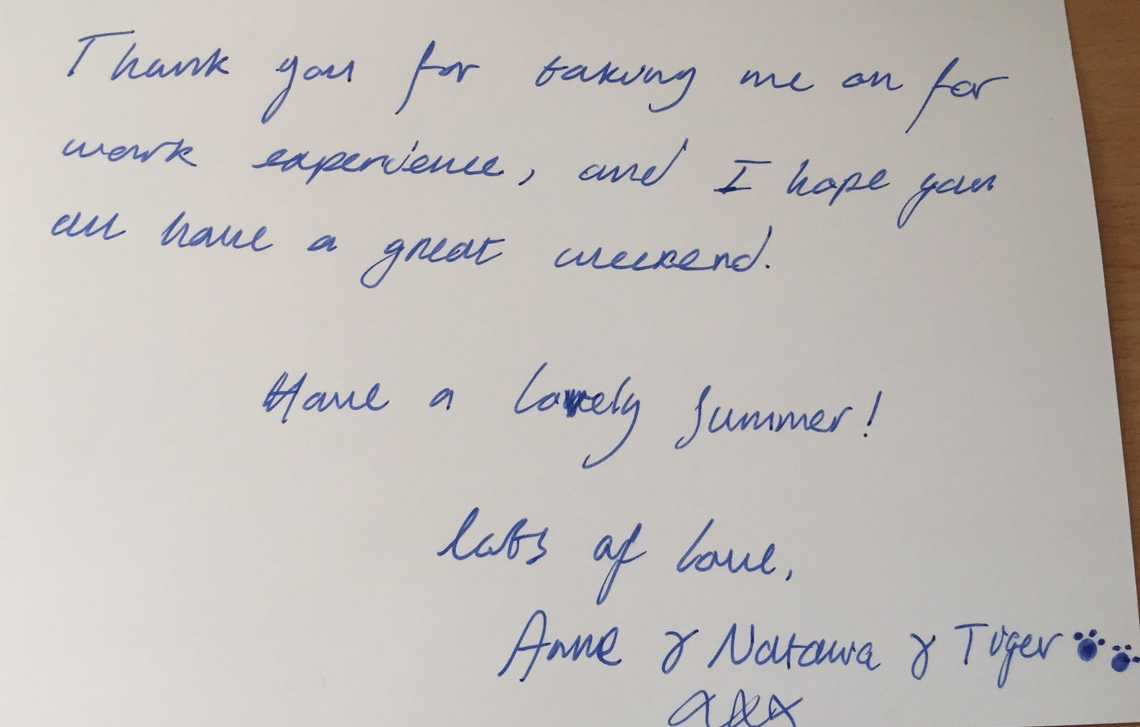 Thank you for taking me on for
work experience, and I hope you
all have a great weekend.
Have a lovely summer!
lots of love,
Anne & Natawa & Tiger
xxx